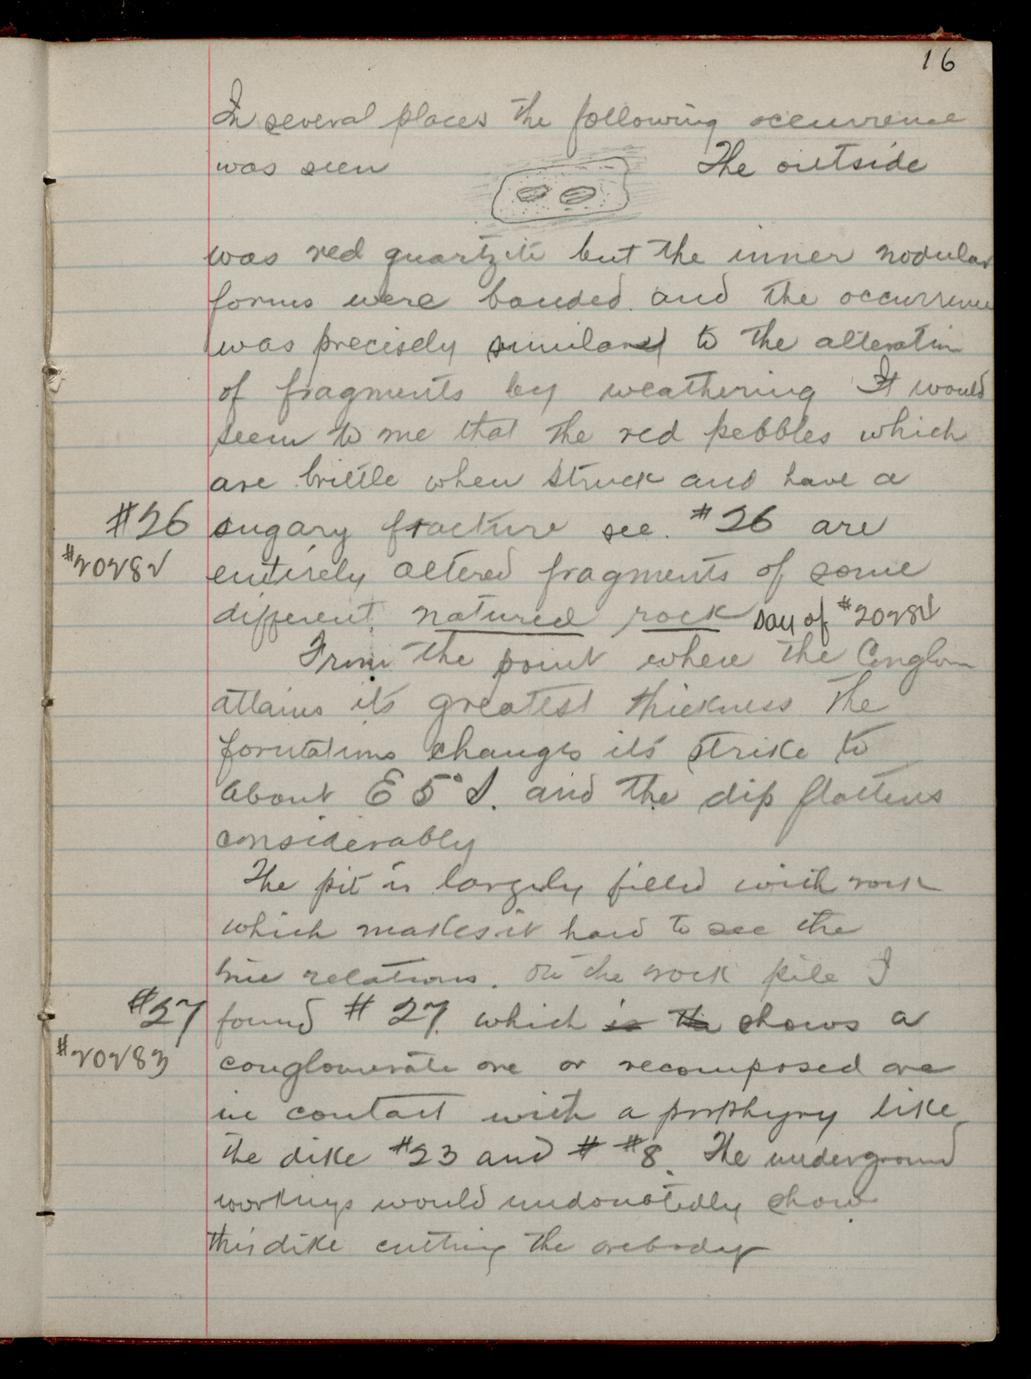 16
In several places the following occurrence
was seen The outside
was red quartzite but the inner nodular
forms were banded and the occurrence
was precisely similar to the alteration
of fragments by weathering It would
seem to me that the red pebbles which
are brittle when struck and have a
#26 sugary fracture see. #26 are
#20282 entirely altered fragments of some
different natured rock say of #20282
From the point where the Conglom
attains its greatest thickness the
formations changes its strike to
about E 5° S. and the dip flattens
considerably
The pit is largely filled with rock
which makes it hard to see the
true relations. On the rock pile I
#27 found #27 which is the shows a
#20283 conglomerate ore or recomposed ore
in contact with a porphyry like
the dike #23 and # #8. The underground
workings would undoubtedly show
this dike cutting the orebody